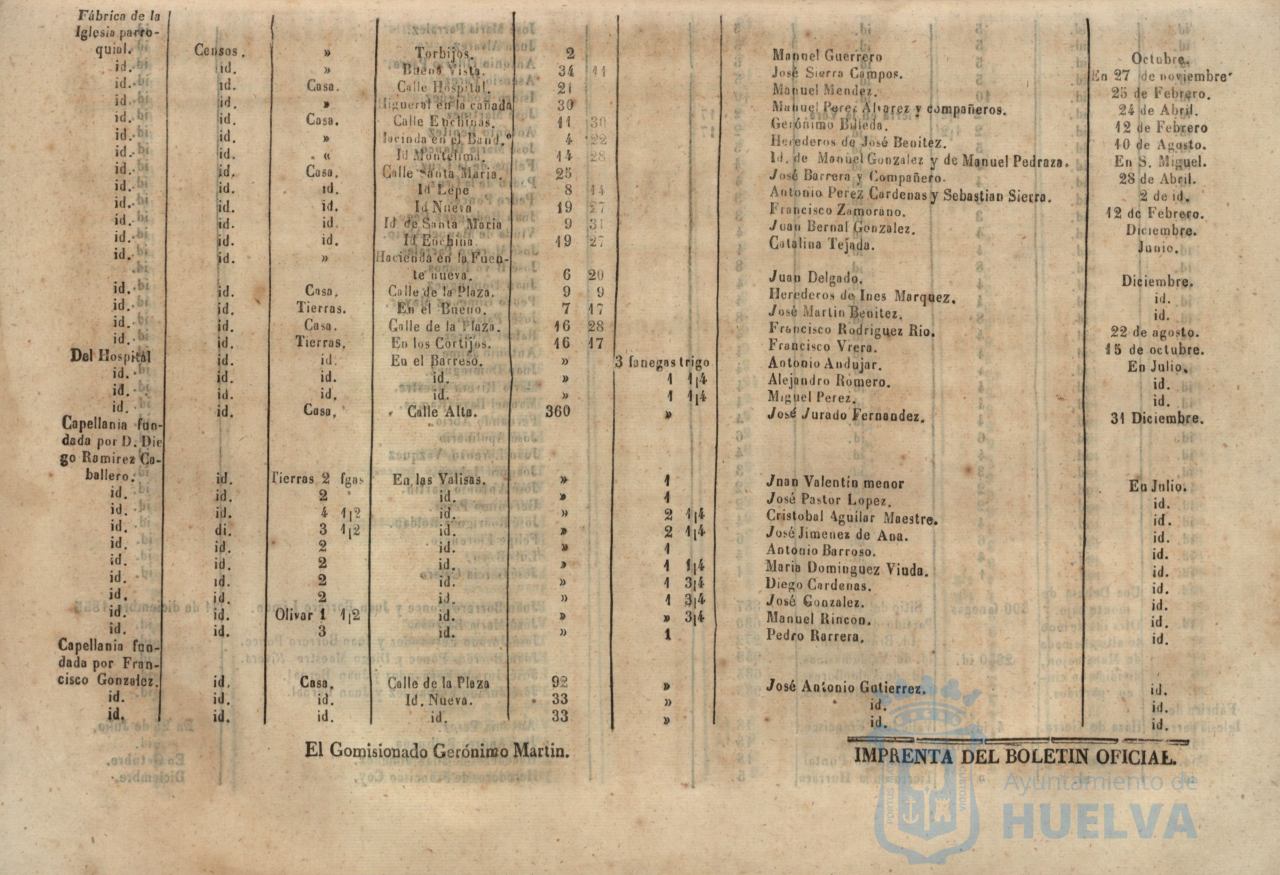 Fábrica de la
Iglesia parro-
quial. Censos. » Torbijos. 2 Manuel Guerrero Octubre.
id. id. » Buena Vista. 34 11 José Sierra Campos. En 27 de noviembre
id. id. Casa. Calle Hospital. 21 Manuel Mendez. 25 de Febrero.
id. id. » Higueral en la cañada 30 Manuel Perez Alvarez y compañeros. 24 de Abril.
id. id. Casa. Calle Enchinas. 11 30 Gerónimo Billeda. 12 de Febrero
id. id. » Hacinda en el Band.º 4 22 Herederos de José Benitez. 10 de Agosto.
id. id. « Id Montelima. 14 28 Id. de Manuel Gonzalez y de Manuel Pedraza. En S. Miguel.
id. id. Casa. Calle Santa Maria. 25 José Barrera y Compañero. 28 de Abril.
id. id. id. Id Lepe 8 14 Antonio Perez Cardenas y Sebastian Sierra. 2 de id.
id. id. id. Id Nueva 19 27 Francisco Zamorano. 12 de Febrero.
id. id. id. Id de Santa Maria 9 31 Juan Bernal Gonzalez. Diciembre.
id. id. id. Id Enchina. 19 27 Catalina Tejada. Junio.
id. id. » Hacienda en la Fuen-
te nueva. 6 20 Juan Delgado. Diciembre.
id. id. Casa. Calle de la Plaza. 9 9 Herederos de Ines Marquez. id.
id. id. Tierras. En el Bueno. 7 17 José Martin Benitez. id.
id. id. Casa. Calle de la Plaza. 16 28 Francisco Rodriguez Rio. 22 de agosto.
id. id. Tierras. En los Cortijos. 16 17 Francisco Vrera. 15 de octubre.
Del Hospital id. id. En el Barreso. » 3 fanegas trigo Antonio Andujar. En Julio.
id. id. id. id. » 1 1¡4 Alejandro Romero. id.
id. id. id. id. » 1 1¡4 Miguel Perez. id.
id. id. Casa. Calle Alta. 360 » José Jurado Fernandez. 31 Diciembre.
Capellania fun-
dada por D. Die
go Ramirez Ca-
ballero. id. Tierras 2 fgas En las Valisas. » 1 Jnan Valentin menor En Julio.
id. id. 2 id. » 1 José Pastor Lopez. id.
id. id. 4 1¡2 id. » 2 1¡4 Cristobal Aguilar Maestre. id.
id. di. 3 1¡2 id. » 2 1¡4 José Jimenez de Ana. id.
id. id. 2 id. » 1 Antonio Barroso. id.
id. id. 2 id. » 1 1¡4 Maria Dominguez Viuda. id.
id. id. 2 id. » 1 3¡4 Diego Cardenas. id.
id. id. 2 id. » 1 3¡4 José Gonzalez. id.
id. id. Olivar 1 1¡2 id. » » 3¡4 Manuel Rincon. id.
id. id. 3 id. » 1 Pedro Rarrera. id.
Capellania fun-
dada por Fran-
cisco Gonzalez. id. Casa. Calle de la Plaza 92 » José Antonio Gutierrez. id.
id. id. id. Id. Nueva. 33 » id. id.
id. id. id. id. 33 » id. id.
El Gomisionado Gerónimo Martin.
IMPRENTA DEL BOLETIN OFICIAL.
Ayuntamiento de
HUELVA